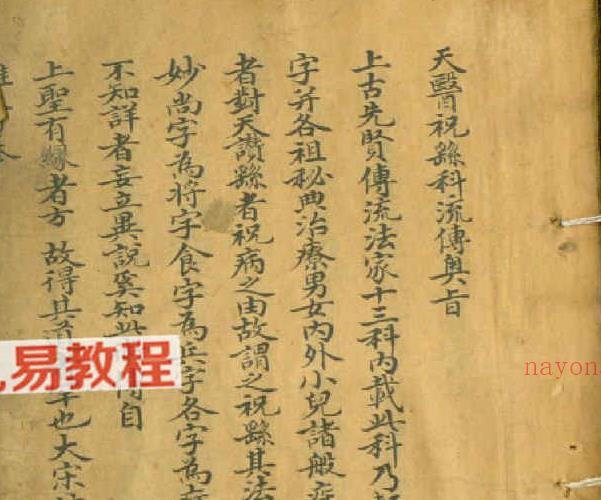 天醫祝繇科流傳奧旨
上古先賢傳流法家十三科內載此科乃
字并各祖秘典治療男女內外小兒諸般
者對天讚繇者祝病之由故謂之祝繇其法
妙尚字為將字食字為兵字各字為
不知詳者妄立異說奚知此 自
上聖有緣者方 故得其道 也大宋
易教程
nayon